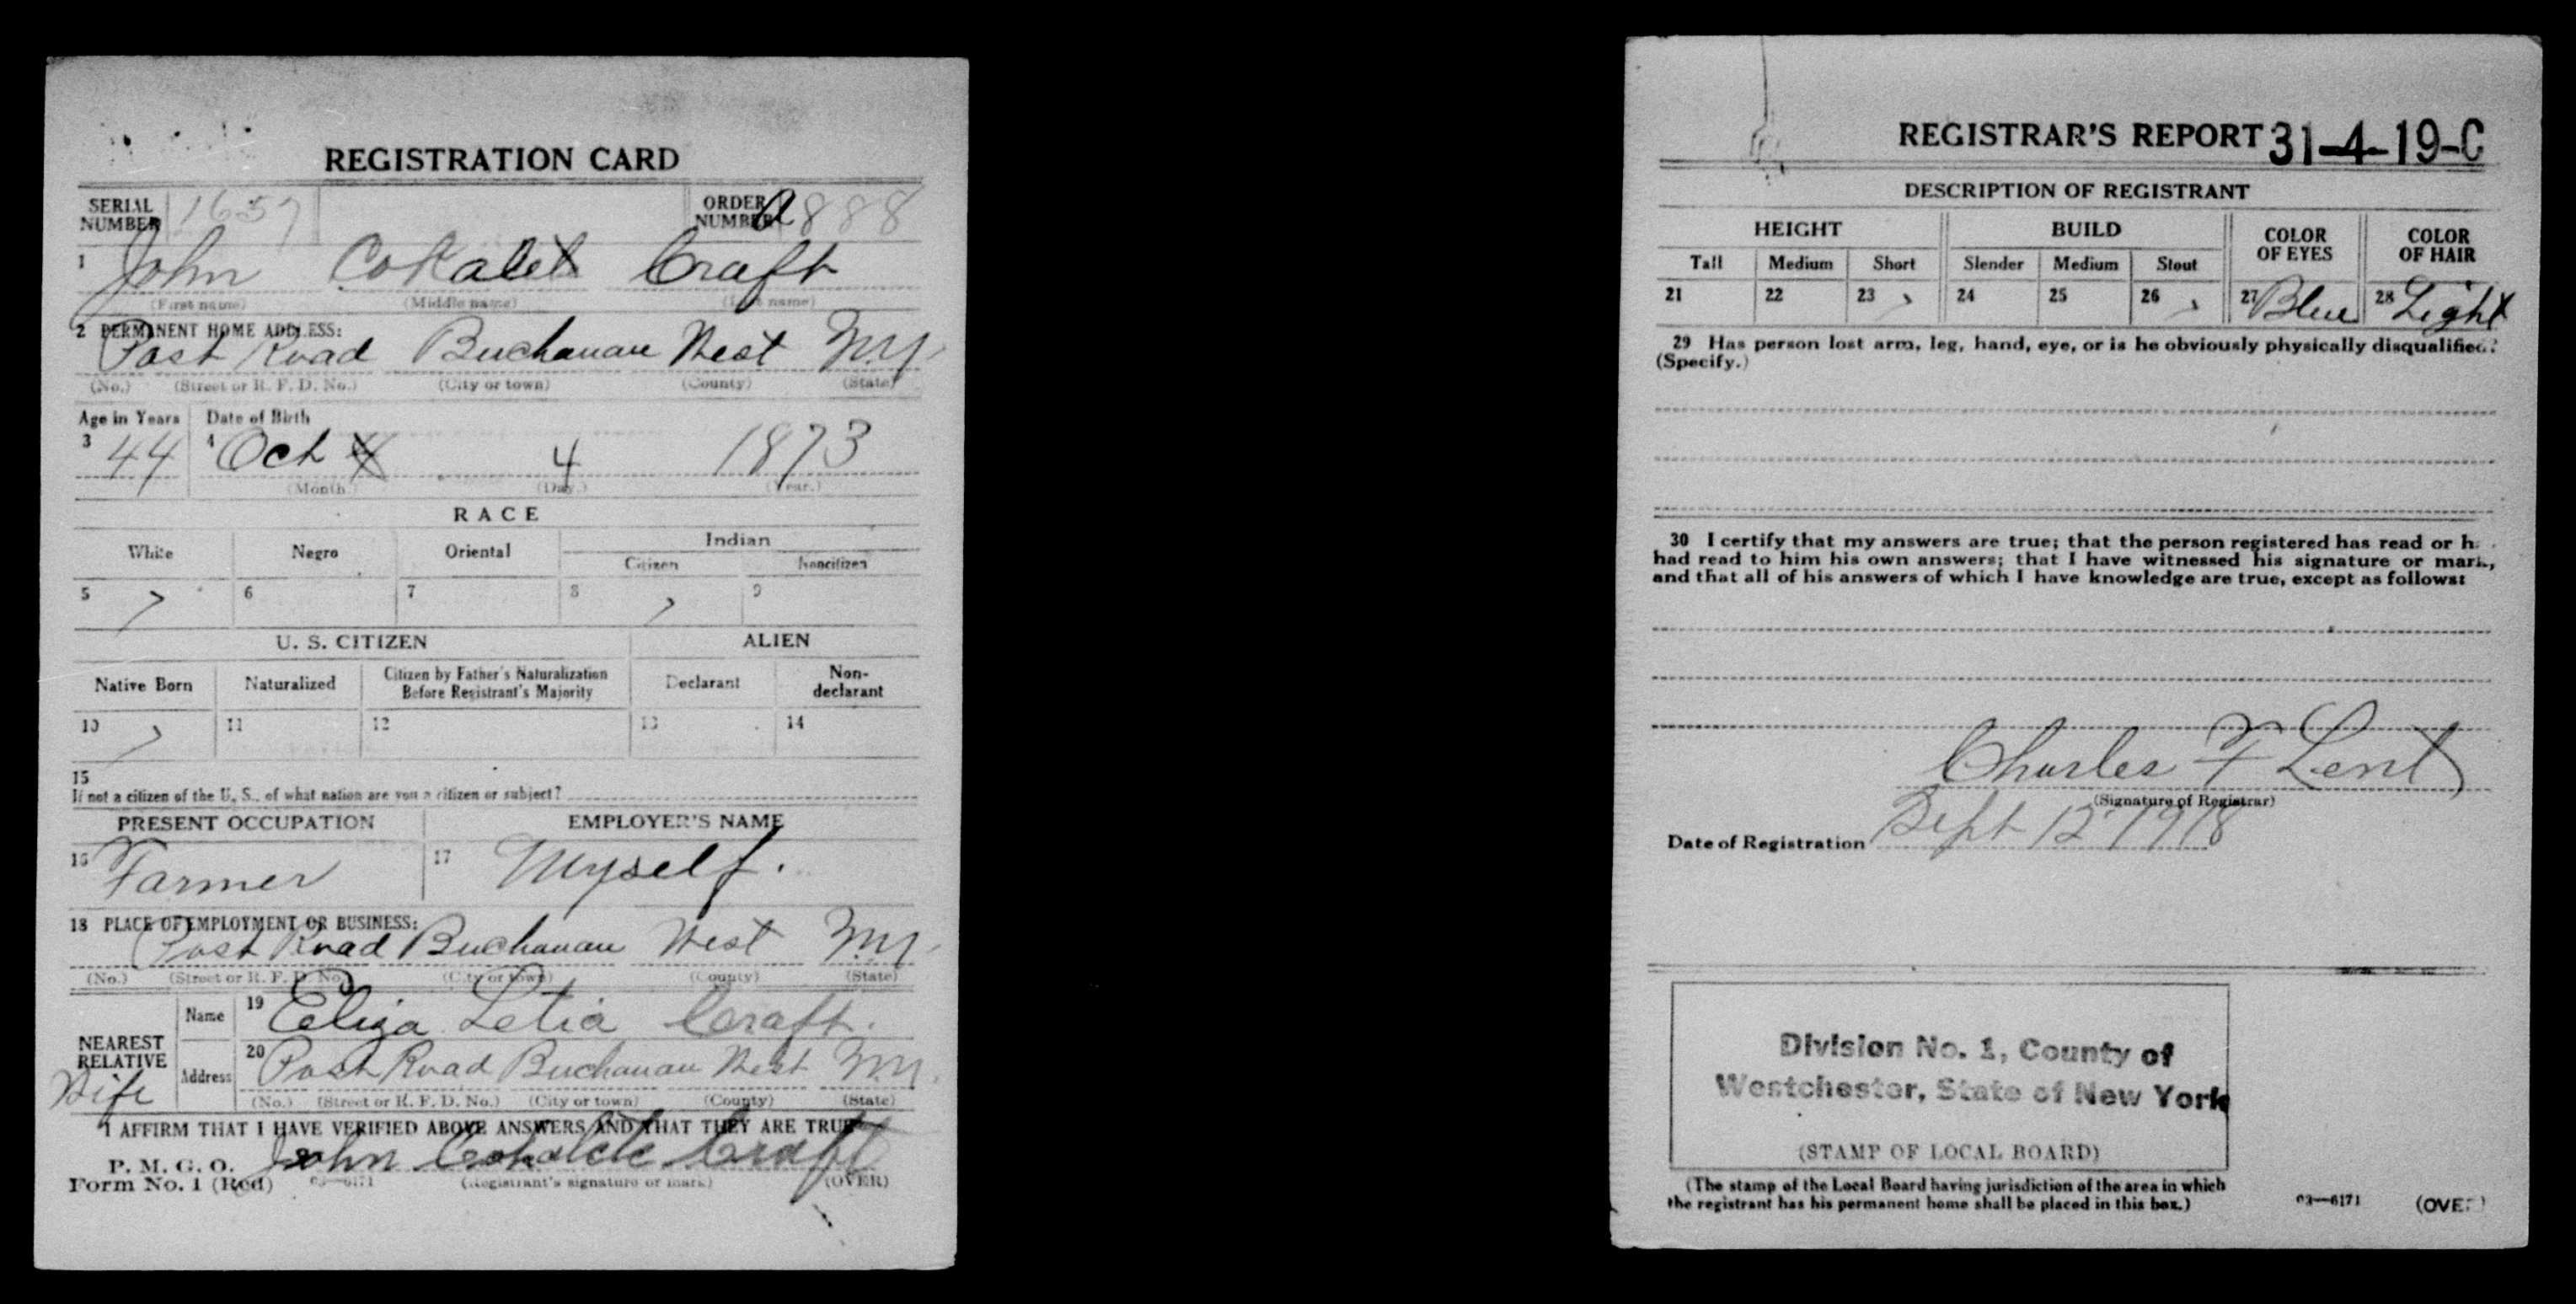 REGISTRATION CARD
SERIAL NUMBER 1657 ORDER NUMBER A888
1 John Cokalet Craft
(First name) (Middle name) (Last name)
2 PERMANENT HOME ADDRESS:
Post Road Buchanan West N.Y.
(No.) (Street or R. F. D. No.) (City or town) (County) (State)
Age in Years Date of Birth
3 44 4 Oct 4 1873
(Month.) (Day.) (Year.)
RACE
White Negro Oriental Indian
Citizen Noncitizen
5 6 7 8 9
U. S. CITIZEN ALIEN
Native Born Naturalized Citizen by Father's Naturalization Before Registrant's Majority Declarant Non-declarant
10 11 12 13 14
15
If not a citizen of the U. S., of what nation are you a citizen or subject?
PRESENT OCCUPATION EMPLOYER'S NAME
16 Farmer 17 Myself.
18 PLACE OF EMPLOYMENT OR BUSINESS:
Post Road Buchanan West N.Y.
(No.) (Street or R. F. D. No.) (City or town) (County) (State)
NEAREST RELATIVE Name 19 Eliza Letia Craft.
Wife Address 20 Post Road Buchanan West N.Y.
(No.) (Street or R. F. D. No.) (City or town) (County) (State)
I AFFIRM THAT I HAVE VERIFIED ABOVE ANSWERS AND THAT THEY ARE TRUE
P. M. G. O.
Form No. 1 (Red) 03—6171 John Craft
(Registrant's signature or mark) (OVER)
REGISTRAR'S REPORT 31-4-19-C
DESCRIPTION OF REGISTRANT
HEIGHT BUILD COLOR OF EYES COLOR OF HAIR
Tall Medium Short Slender Medium Stout
21 22 23 24 25 26 27 Blue 28 Light
29 Has person lost arm, leg, hand, eye, or is he obviously physically disqualified?
(Specify.)
30 I certify that my answers are true; that the person registered has read or h
had read to him his own answers; that I have witnessed his signature or mark,
and that all of his answers of which I have knowledge are true, except as follows:
Charles F Lent
(Signature of Registrar)
Date of Registration Sept 12 1918
Division No. 1, County of
Westchester, State of New York
(STAMP OF LOCAL BOARD)
(The stamp of the Local Board having jurisdiction of the area in which
the registrant has his permanent home shall be placed in this box.)
03—6171 (OVER)